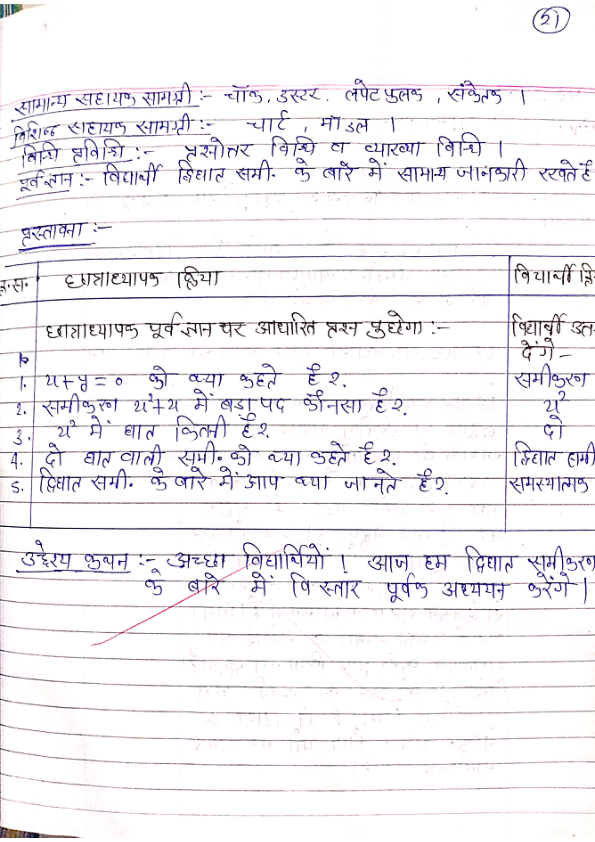 51
सामान्य सहायक सामग्री :- चॉक, डस्टर, लपेट फुलक, संकेतक ।
विशिष्ट सहायक सामग्री :- चार्ट, मॉडल ।
विधि प्रविधि :- प्रश्नोत्तर विधि व व्याख्या विधि ।
पूर्वज्ञान :- विद्यार्थी द्विघात समी. के बारे में सामान्य जानकारी रखते हैं
प्रस्तावना :-
क्र.स. छात्राध्यापक क्रिया विद्यार्थी
छात्राध्यापक पूर्वज्ञान पर आधारित प्रश्न पुछेगा :- विद्यार्थी उत्त
देंगे -
1. x+y=0 को क्या कहते हैं? समीकरण
2. समीकरण x²+x में बड़ा पद कौनसा है? x²
3. x² में घात कितनी है? दो
4. दो घात वाली समी. को क्या कहते हैं? द्विघात समी
5. द्विघात समी. के बारे में आप क्या जानते हैं? समस्यात्मक
उद्देश्य कथन :- अच्छा विद्यार्थियों ! आज हम द्विघात समीकरण
के बारे में विस्तार पूर्वक अध्ययन करेंगे ।